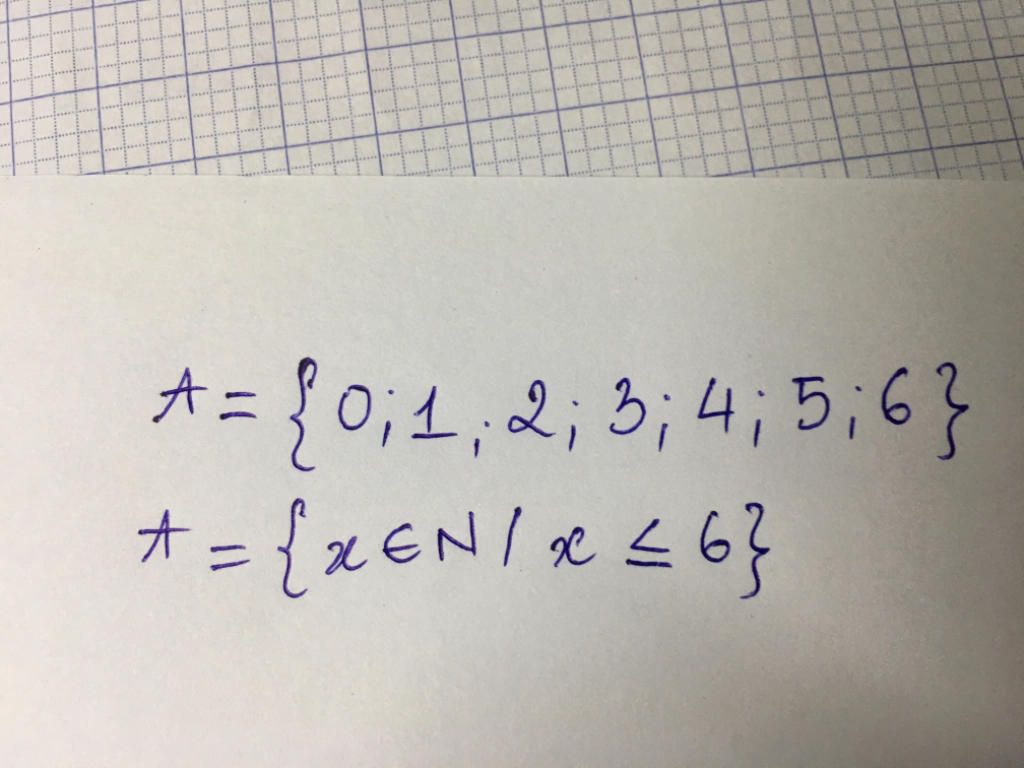 A = {0; 1; 2; 3; 4; 5; 6}
A = {x ∈ N / x ≤ 6}